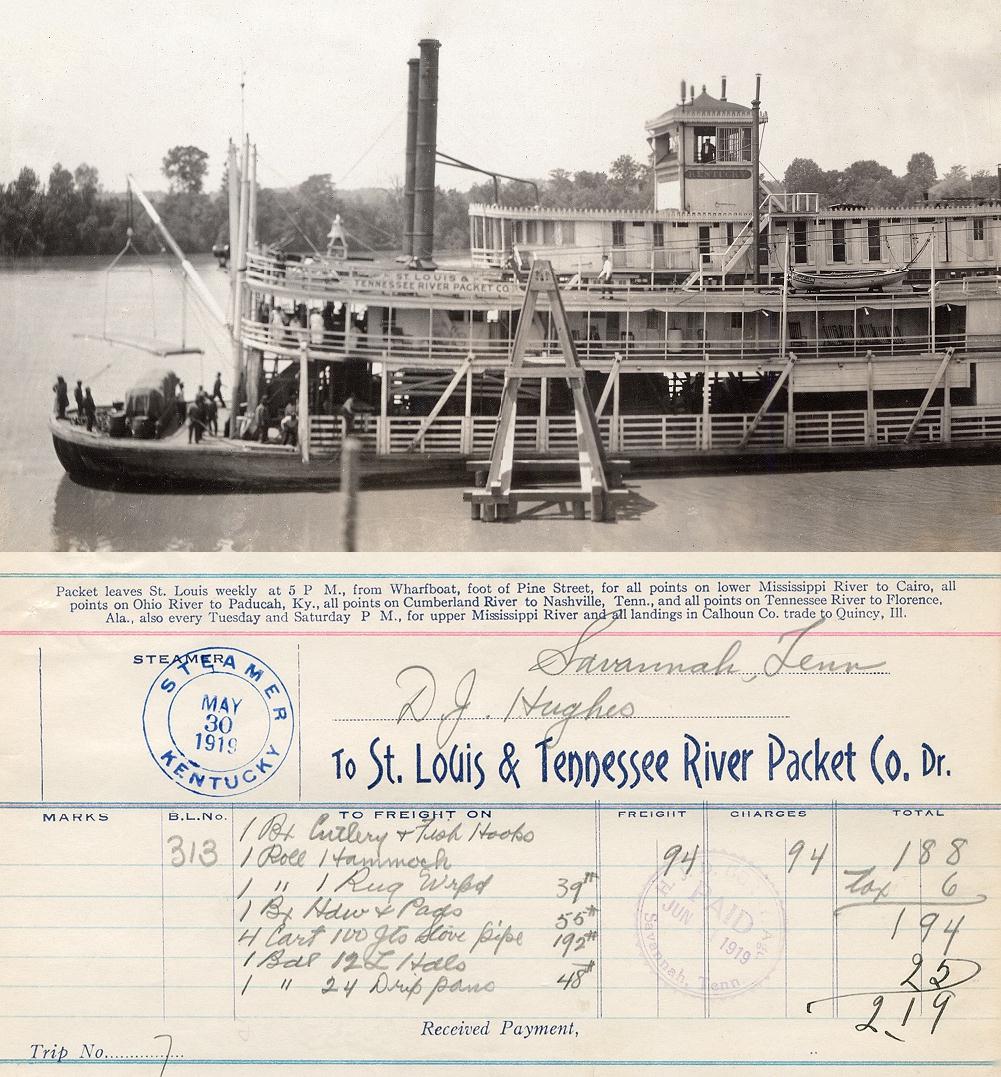 KENTUCKY
ST. LOUIS &
TENNESSEE RIVER PACKET CO.
Packet leaves St. Louis weekly at 5 P M., from Wharfboat, foot of Pine Street, for all points on lower Mississippi River to Cairo, all
points on Ohio River to Paducah, Ky., all points on Cumberland River to Nashville, Tenn., and all points on Tennessee River to Florence,
Ala., also every Tuesday and Saturday P M., for upper Mississippi River and all landings in Calhoun Co. trade to Quincy, Ill.
Savannah, Tenn
STEAMER
STEAMER
MAY
30
1919
KENTUCKY
D J. Hughes
To St. Louis & Tennessee River Packet Co. Dr.
MARKS B.L.No. TO FREIGHT ON FREIGHT CHARGES TOTAL
1 Bx Cutlery & Fish Hooks
313 1 Roll 1 Hammock 94 94 188
1 " 1 Rug Wrpd 39# Tax 6
1 Bx Hdw & Pads 55# 194
4 Cart 100 Jts Stove pipe 192#
1 Bdl 12 L Hdls 25
1 " 24 Drip pans 48# 2.19
PAID
JUN 1919
Savannah, Tenn
Received Payment,
Trip No. 7